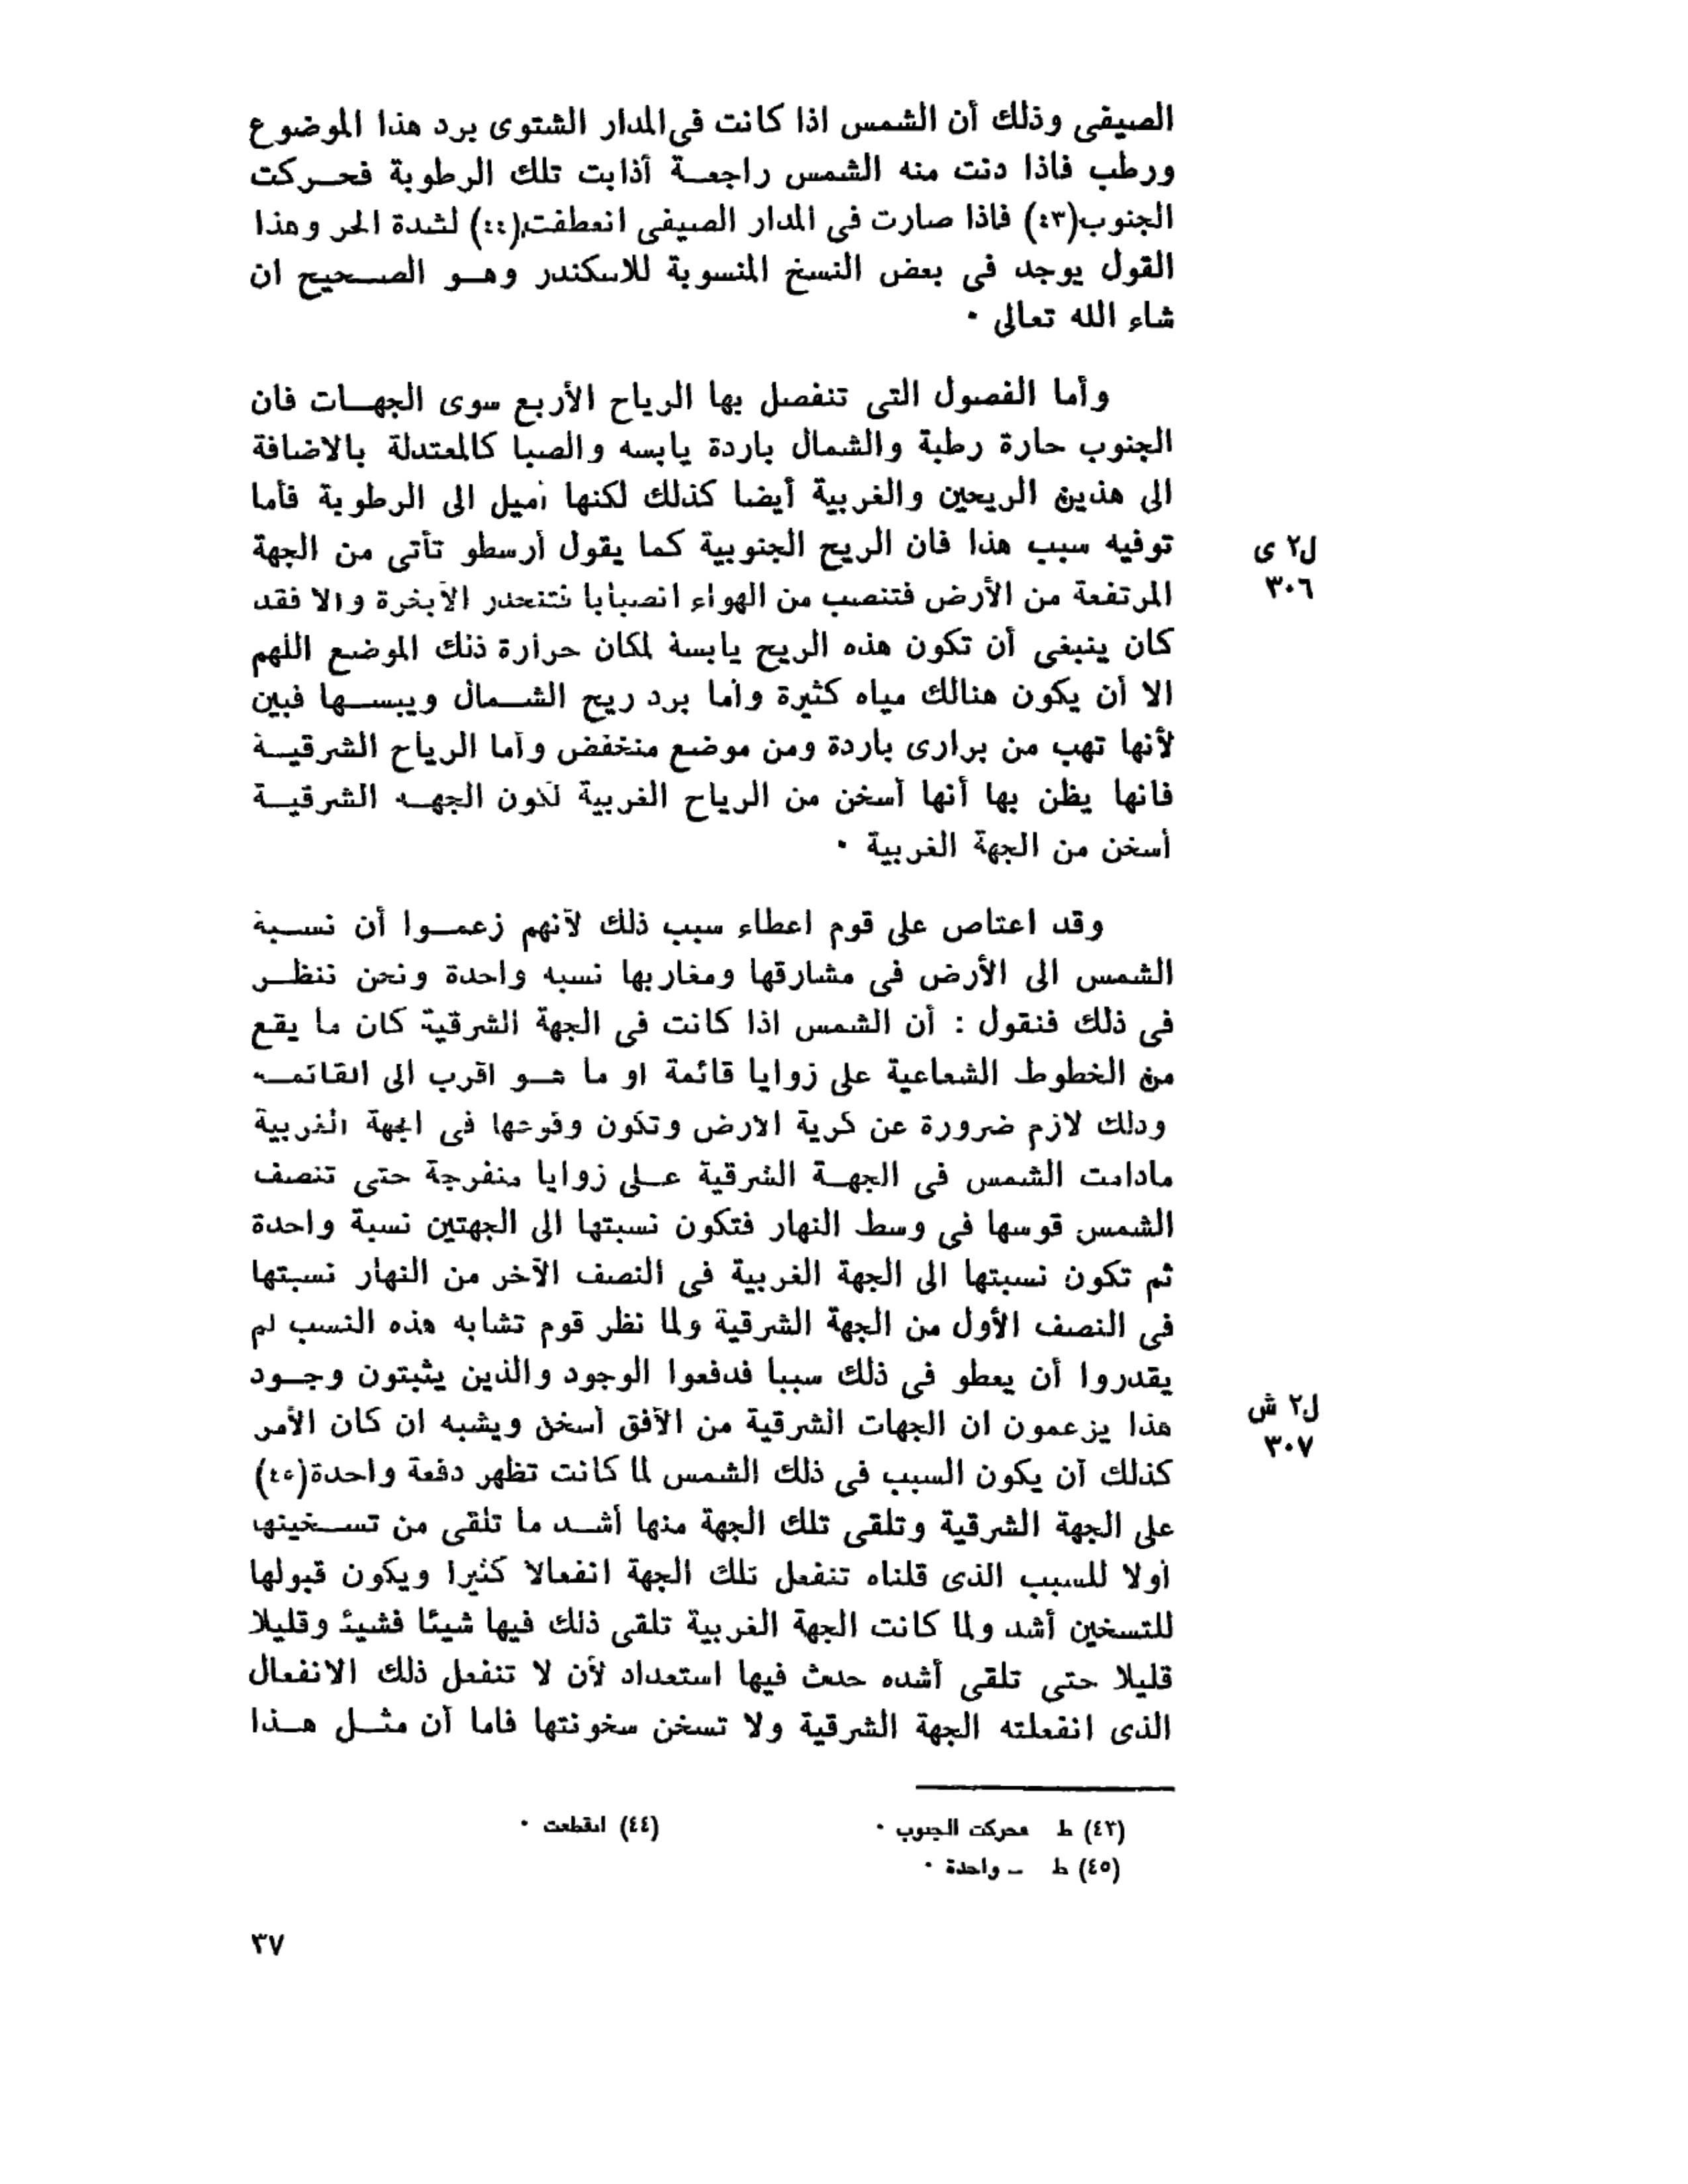 الصيفى وذلك أن الشمس اذا كانت فى المدار الشتوى برد هذا الموضوع
ورطب فاذا دنت منه الشمس راجعة أذابت تلك الرطوبة فحركت
الجنوب(٤٣) فاذا صارت فى المدار الصيفى انعطفت(٤٤) لشدة الحر وهذا
القول يوجد فى بعض النسخ المنسوبة للاسكندر وهو الصحيح ان
شاء الله تعالى ٠
وأما الفصول التى تنفصل بها الرياح الأربع سوى الجهات فان
الجنوب حارة رطبة والشمال باردة يابسه والصبا كالمعتدلة بالاضافة
الى هذين الريحين والغربية أيضا كذلك لكنها أميل الى الرطوبة فأما
توفيه سبب هذا فان الريح الجنوبية كما يقول أرسطو تأتى من الجهة
ل٢ ى
٣٠٦
المرتفعة من الأرض فتنصب من الهواء انصبابا فتنحدر الأبخرة والا فقد
كان ينبغى أن تكون هذه الريح يابسة لمكان حرارة ذلك الموضع اللهم
الا أن يكون هنالك مياه كثيرة وأما برد ريح الشمال ويبسها فبين
لأنها تهب من برارى باردة ومن موضع منخفض وأما الرياح الشرقية
فانها يظن بها أنها أسخن من الرياح الغربية لكون الجهه الشرقية
أسخن من الجهة الغربية ٠
وقد اعتاص على قوم اعطاء سبب ذلك لأنهم زعموا أن نسبة
الشمس الى الأرض فى مشارقها ومغاربها نسبه واحدة ونحن ننظر
فى ذلك فنقول : أن الشمس اذا كانت فى الجهة الشرقية كان ما يقع
من الخطوط الشعاعية على زوايا قائمة او ما هو اقرب الى القائمه
وذلك لازم ضرورة عن كرية الارض وتكون وقوعها فى الجهة الغربية
مادامت الشمس فى الجهة الشرقية على زوايا منفرجة حتى تنصف
الشمس قوسها فى وسط النهار فتكون نسبتها الى الجهتين نسبة واحدة
ثم تكون نسبتها الى الجهة الغربية فى النصف الآخر من النهار نسبتها
فى النصف الأول من الجهة الشرقية ولما نظر قوم تشابه هذه النسب لم
يقدروا أن يعطو فى ذلك سببا فدفعوا الوجود والذين يثبتون وجود
ل٢ ش
٣٠٧
هذا يزعمون ان الجهات الشرقية من الأفق أسخن ويشبه ان كان الأمر
كذلك أن يكون السبب فى ذلك الشمس لما كانت تظهر دفعة واحدة(٤٥)
على الجهة الشرقية وتلقى تلك الجهة منها أشد ما تلقى من تسخينها
أولا للسبب الذى قلناه تنفعل تلك الجهة انفعالا كثيرا ويكون قبولها
للتسخين أشد ولما كانت الجهة الغربية تلقى ذلك فيها شيئا فشيئ وقليلا
قليلا حتى تلقى أشده حدث فيها استعداد لأن لا تنفعل ذلك الانفعال
الذى انفعلته الجهة الشرقية ولا تسخن سخونتها فاما أن مثل هذا
(٤٣) ط فحركت الجنوب ٠
(٤٤) انقطعت ٠
(٤٥) ط – واحدة ٠
٣٧